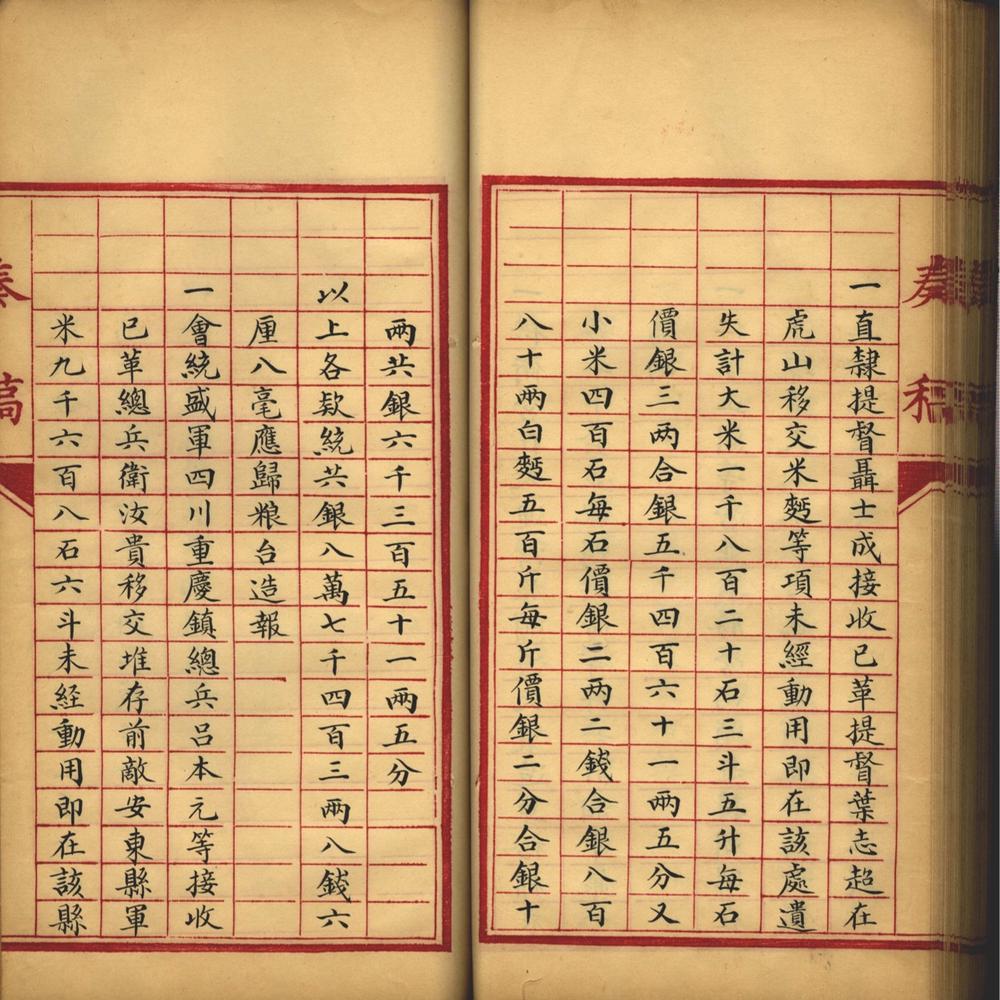 奏稿
一直隸提督聶士成接收已革提督葉志超在
虎山移交米麪等項未經動用即在該處遺
失計大米一千八百二十石三斗五升每石
價銀三两合銀五千四百六十一两五分又
小米四百石每石價銀二两二錢合銀八百
八十两白麪五百斤每斤價銀二分合銀十
兩共銀六千三百五十一两五分
以上各款統共銀八萬七千四百三两八錢六
厘八毫應歸粮台造報
一會統盛軍四川重慶鎮總兵呂本元等接收
已革總兵衛汝貴移交堆存前敵安東縣軍
米九千六百八石六斗未経動用即在該縣
奏稿